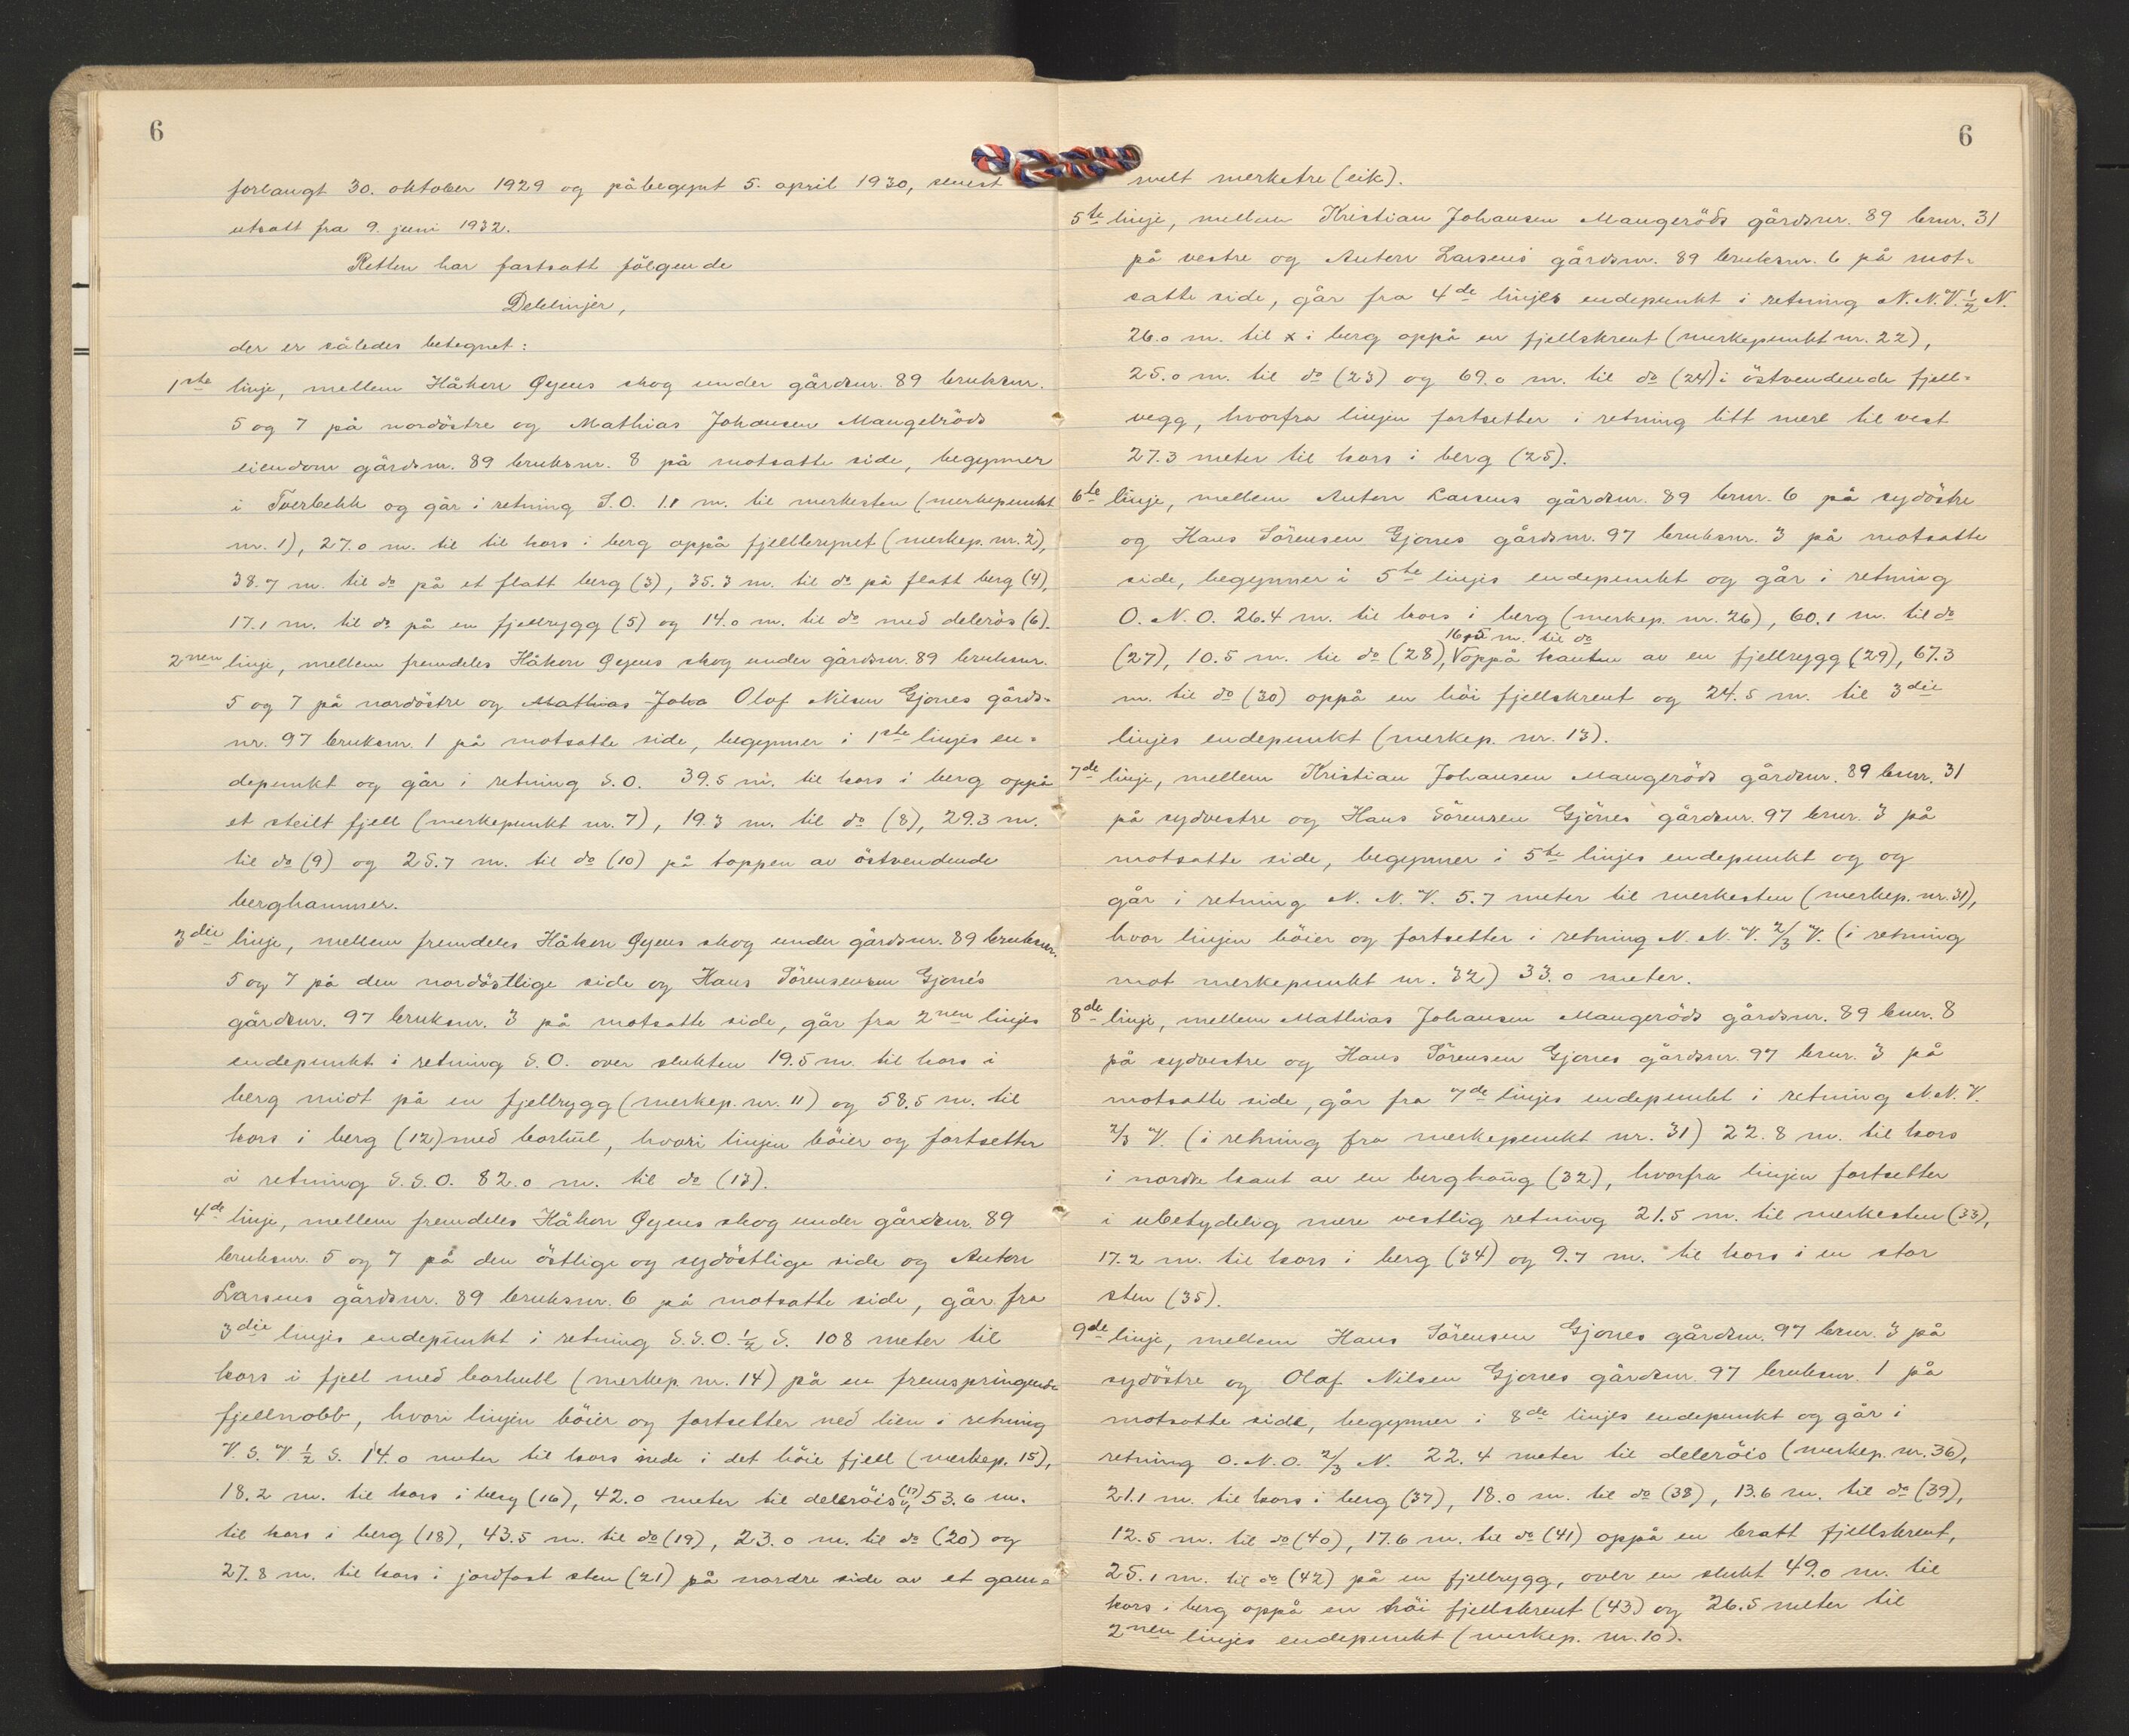 6
forlangt 30. oktober 1929 og påbegynt 5. april 1930, senest
utsatt fra 9. juni 1932.
Retten har fastsatt fölgende
Delelinjer,
der er således betegnet:
1ste linje, mellem Håkon Qyens skog under gårdsnr. 89 bruksnr.
5 og 7 på nordöstre og Mathias Johansen Maugebröds
eiendom gårdsnr. 89 bruksnr. 8 på motsatte side, begynner
i Tverbekk og går i retning S.O. 1.1 m. til merkesten (merkepunkt
nr. 1), 27.0 m. til til kors i berg oppå fjellbrynet (merkep. nr. 2),
38.7 m. til do på et flatt berg (3), 35.3 m. til do på flatt berg (4),
17.1 m. til do på en fjellrygg (5) og 14.0 m. til do med delerös (6).
2nen linje, mellem fremdeles Håkon Qyens skog under gårdsnr. 89 bruksnr.
5 og 7 på nordöstre og Mathias Joha Olaf Nilsen Gjones gårds=
nr. 97 bruksnr. 1 på motsatte side, begynner i 1ste linjes en=
depunkt og går i retning S.O. 39.5 m. til kors i berg oppå
et steilt fjell (merkepunkt nr. 7), 19.3 m. til do (8), 29.3 m.
til do (9) og 25.7 m. til do (10) på toppen av östvendende
berghammer.
3die linje, mellem fremdeles Håkon Qyens skog under gårdsnr. 89 bruksnr.
5 og 7 på den nordöstlige side og Hans Sörensensen Gjones
gårdsnr. 97 bruksnr. 3 på motsatte side, går fra 2nen linjes
endepunkt i retning S.O. over slukten 19.5 m. til kors i
berg midt på en fjellrygg (merkep. nr. 11) og 58.5 m. til
kors i berg (12) med borhull, hvori linjen böier og fortsetter
i retning S.S.O. 82.0 m. til do (13).
4de linje, mellem fremdeles Håkon Qyens skog under gårdsnr. 89
bruksnr. 5 og 7 på den östlige og sydöstlige side og Anton
Larsens gårdsnr. 89 bruksnr. 6 på motsatte side, går fra
3die linjes endepunkt i retning S.S.O. ½ S. 108 meter til
kors i fjell med borhull (merkep. nr. 14) på en fremspringende
fjellnobb, hvori linjen böier og fortsetter ned lien i retning
V. S. V. ½ S. 14.0 meter til kors nede i det höie fjell (merkep. 15),
18.2 m. til kors i berg (16), 42.0 meter til deleröis (17), 53.6 m.
til kors i berg (18), 43.5 m. til do (19), 23.0 m. til do (20) og
27.8 m. til kors i jordfast sten (21) på nordre side av et gam=
6
melt merketre (eik).
5te linje, mellem Kristian Johansen Maugeröds gårdsnr. 89 brnr. 31
på vestre og Anton Larsens gårdsnr. 89 bruksnr. 6 på mot=
satte side, går fra 4de linjes endepunkt i retning N.N.V. ½ N.
26.0 m. til x i berg oppå en fjellskrent (merkepunkt nr. 22),
25.0 m. til do (23) og 69.0 m. til do (24) i östvendende fjell=
vegg, hvorfra linjen fortsetter i retning litt mere til vest
27.3 meter til kors i berg (25).
6te linje, mellem Anton Larsens gårdsnr. 89 brnr. 6 på sydöstre
og Hans Sörensen Gjones gårdsnr. 97 bruksnr. 3 på motsatte
side, begynner i 5te linjes endepunkt og går i retning
O. N. O. 26.4 m. til kors i berg (merkep. nr. 26), 60.1 m. til do
16.5 m. til do
(27), 10.5 m. til do (28), V oppå kanten av en fjellrygg (29), 67.3
m. til do (30) oppå en höi fjellskrent og 24.5 m. til 3die
linjes endepunkt (merkep. nr. 13).
7de linje, mellem Kristian Johansen Maugeröds gårdsnr. 89 brnr. 31
på sydvestre og Hans Sörensen Gjönes gårdsnr. 97 brnr. 3 på
motsatte side, begynner i 5te linjes endepunkt og og
går i retning N. N. V. 5.7 meter til merkesten (merkep. nr. 31),
hvor linjen böier og fortsetter i retning N. N. V. 2/3 V. (i retning
mot merkepunkt nr. 32) 33.0 meter.
8de linje, mellem Mathias Johansen Maugeröds gårdsnr. 89 brnr. 8
på sydvestre og Hans Sörensen Gjones gårdsnr. 97 brnr. 3 på
motsatte side, går fra 7de linjes endepunkt i retning N.N.V.
2/3 V. (i retning fra merkepunkt nr. 31) 22.8 m. til kors
i nordre kant av en berghaug (32), hvorfra linjen fortsetter
i ubetydelig mere vestlig retning 21.5 m. til merkesten (33),
17.2 m. til kors i berg (34) og 9.7 m. til kors i en stor
sten (35).
9de linje, mellem Hans Sörensen Gjones gårdsnr. 97 brnr. 3 på
sydöstre og Olaf Nilsen Gjones gårdsnr. 97 bruksnr. 1 på
motsatte side, begynner i 8de linjes endepunkt og går i
retning O. N. O. 2/3 N. 22.4 meter til deleröis (merkep. nr. 36),
21.1 m. til kors i berg (37), 18.0 m. til do (38), 13.6 m. til do (39),
12.5 m. til do (40), 17.6 m. til do (41) oppå en bratt fjellskrent,
25.1 m. til do (42) på en fjellrygg, over en slukt 49.0 m. til
kors i berg oppå en höi fjellskrent (43) og 26.5 meter til
2nen linjes endepunkt (merkep. nr. 10).